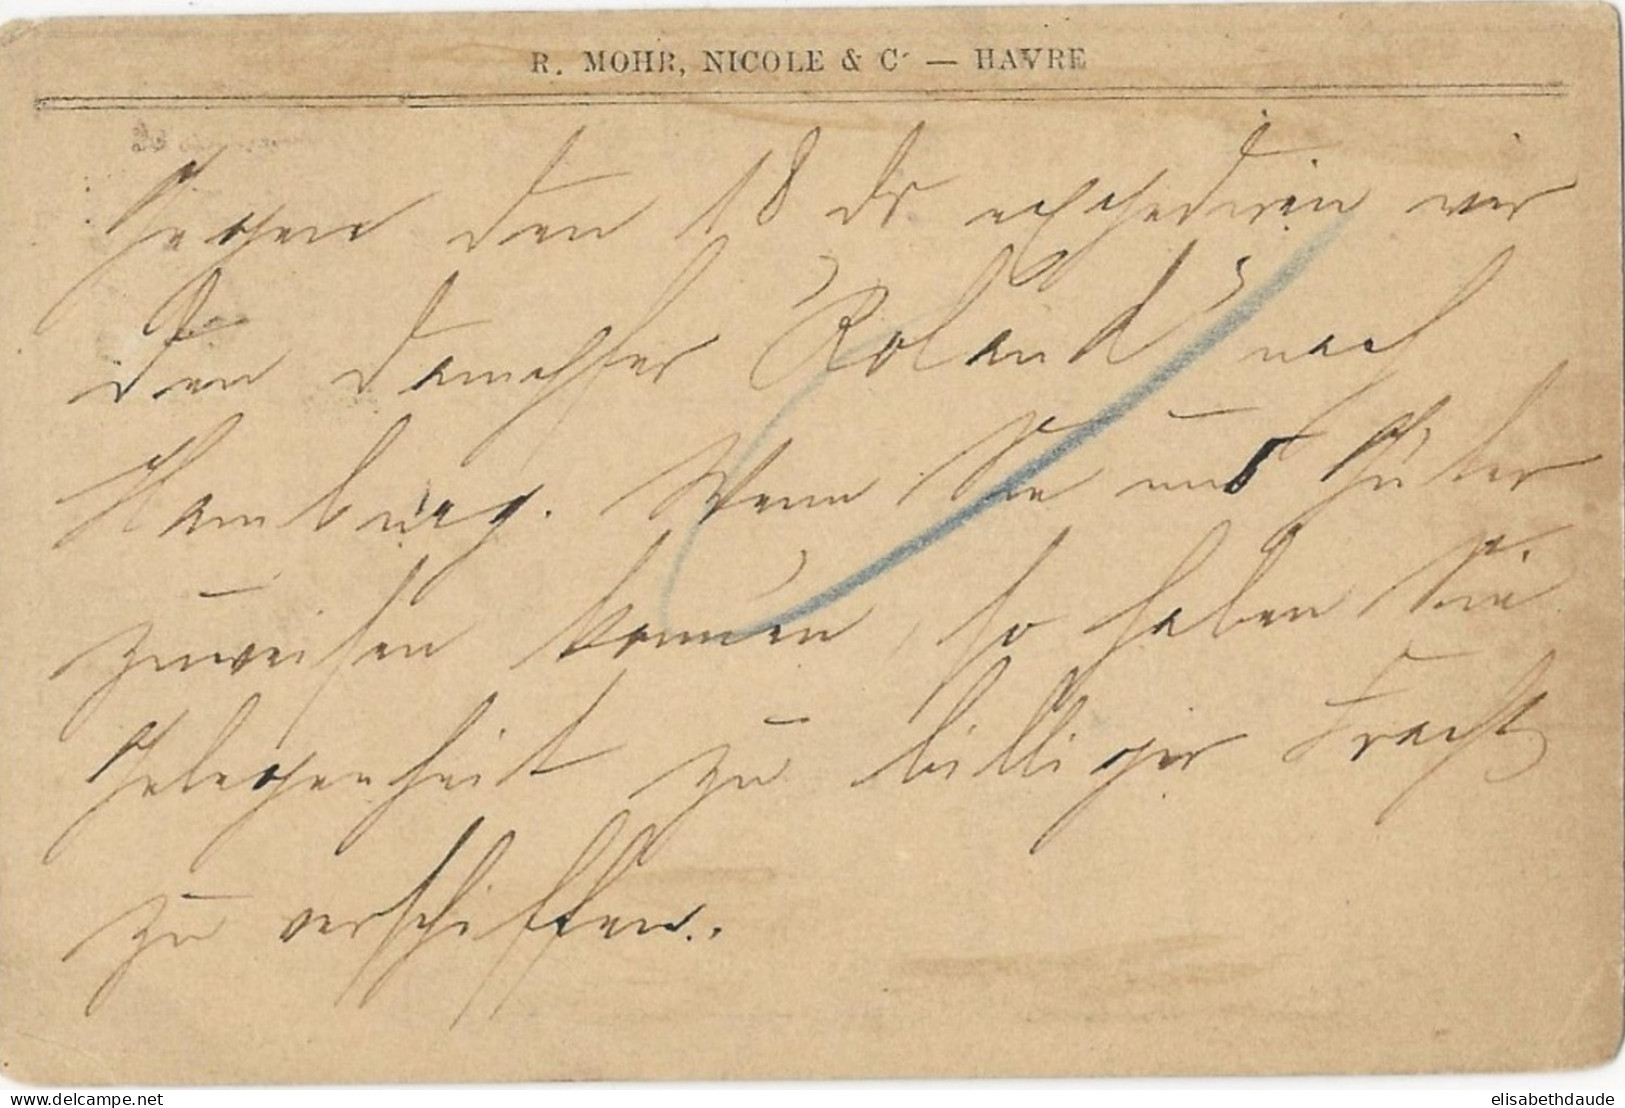 R. MOHR, NICOLE & Cⁱᵉ — HAVRE
Gegen den 18 ds expedieren wir
den Dampfer "Roland" nach
Hamburg. Wenn Sie uns Güter
zuweisen können, so haben Sie
Gelegenheit zu billiger Fracht
zu verschiffen.
delcampe.net
elisabethdaude